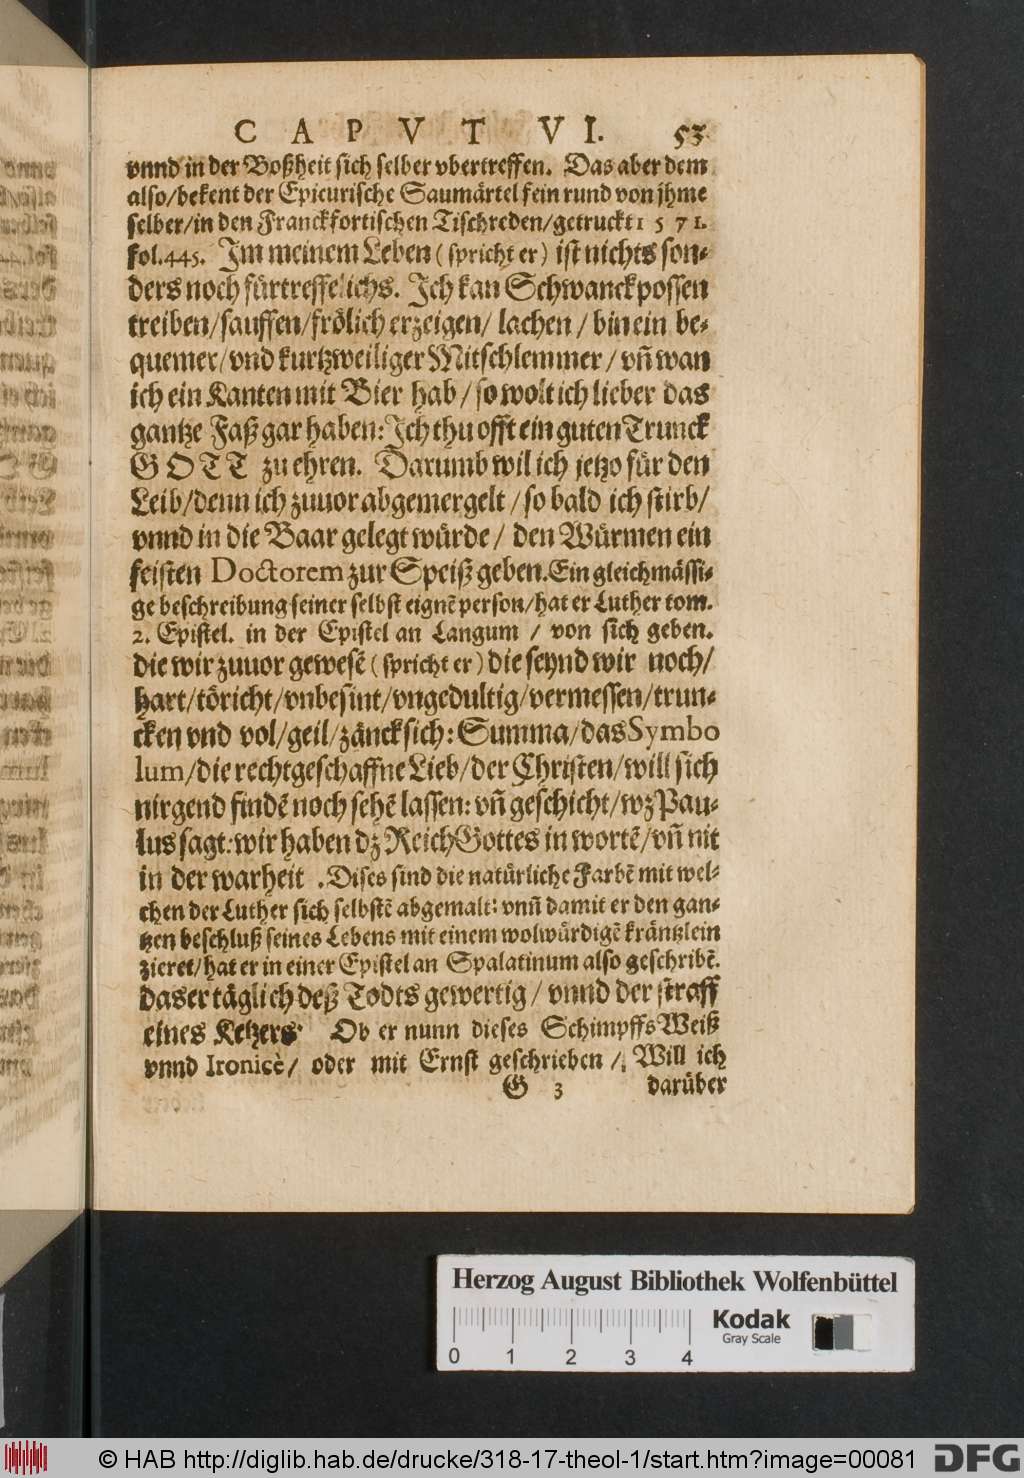 CAPVT VI. 53
vnnd in der Boßheit sich selber vbertreffen. Das aber dem
also/bekent der Epicurische Saumärtel fein rund von jhme
selber/in den Franckfortischen Tischreden/getruckt 1571.
fol.445. Im meinem Leben (spricht er) ist nichts son-
ders noch fürtreffelichs. Ich kan Schwanckpossen
treiben/sauffen/frölich erzeigen/ lachen / bin ein be-
quemer/vnd kurtzweiliger Mitschlemmer / vñ wan
ich ein Kanten mit Bier hab / so wolt ich lieber das
gantze Faß gar haben: Ich thu offt ein guten Trunck
GOTT zu ehren. Darumb wil ich jetzo für den
Leib/denn ich zuuor abgemergelt / so bald ich stirb/
vnnd in die Baar gelegt würde / den Würmen ein
feisten Doctorem zur Speiß geben. Ein gleichmässi-
ge beschreibung seiner selbst eignẽ person/hat er Luther tom.
2. Epistel. in der Epistel an Langum / von sich geben.
die wir zuuor gewesẽ (spricht er) die seynd wir noch/
hart/töricht/vnbesint/vngedultig/vermessen/trun-
cken vnd vol/geil/zäncksich: Summa/das Symbo
lum/die rechtgeschaffne Lieb/der Christen/will sich
nirgend findẽ noch sehẽ lassen: vñ geschicht/wz Pau-
lus sagt: wir haben dz Reich Gottes in wortẽ/vñ nit
in der warheit . Dises sind die natürliche Farbẽ mit wel-
chen der Luther sich selbstẽ abgemalt: vnñ damit er den gan-
tzen beschluß seines Lebens mit einem wolwürdigẽ kräntzlein
zieret/hat er in einer Epistel an Spalatinum also geschribẽ.
das er täglich deß Todts gewertig / vnnd der straff
eines Ketzers. Ob er nunn dieses Schimpffs Weiß
vnnd Ironicè/ oder mit Ernst geschrieben /. Will ich
G 3 darüber
Herzog August Bibliothek Wolfenbüttel
Kodak
Gray Scale
0 1 2 3 4
© HAB http://diglib.hab.de/drucke/318-17-theol-1/start.htm?image=00081
DFG